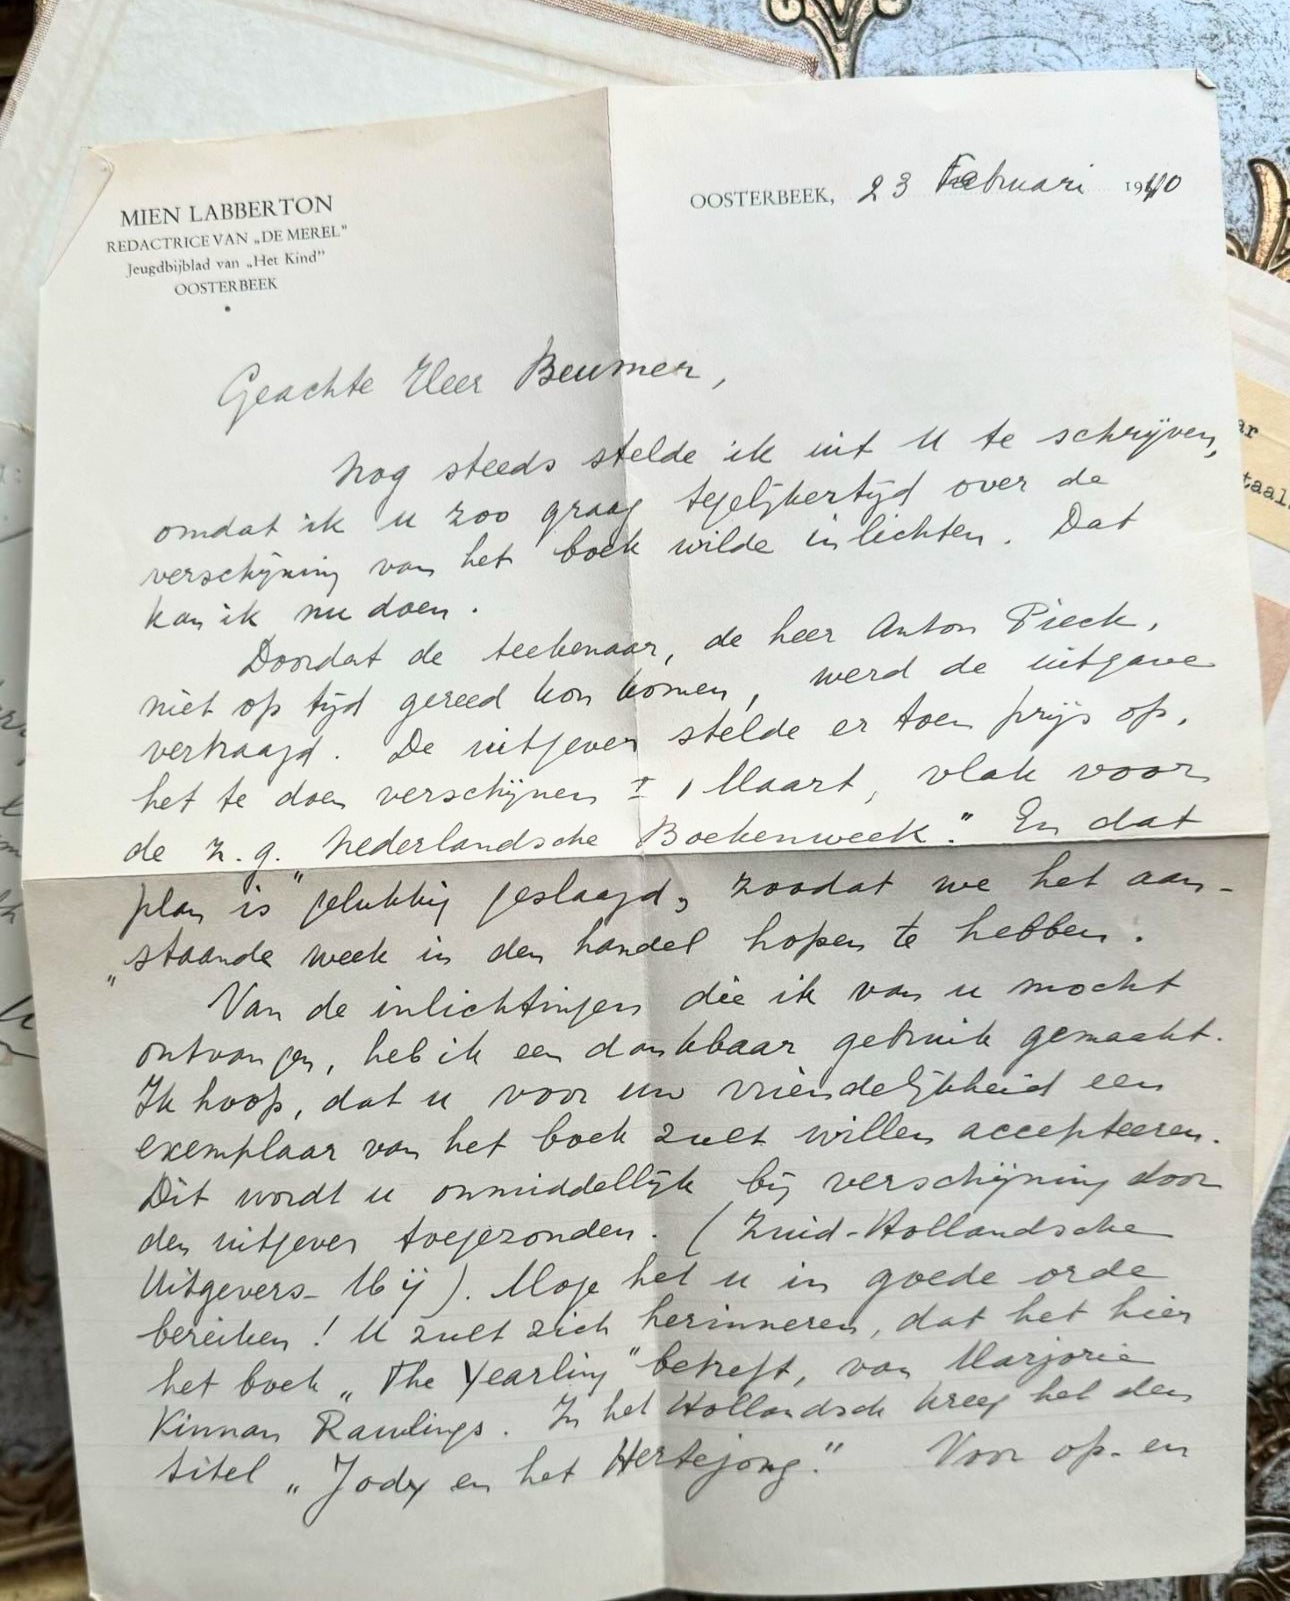 MIEN LABBERTON
REDACTRICE VAN „DE MEREL"
Jeugdbijblad van „Het Kind"
OOSTERBEEK
OOSTERBEEK, 23 Februari 1940
Geachte Heer Beumer,
Nog steeds stelde ik uit U te schrijven,
omdat ik u zoo graag tegelijkertijd over de
verschijning van het boek wilde inlichten. Dat
kan ik nu doen.
Doordat de teekenaar, de heer Anton Pieck,
niet op tijd gereed kon komen, werd de uitgave
vertraagd. De uitgever stelde er toen prijs op,
het te doen verschijnen ± 1 Maart, vlak voor
de z.g. Nederlandsche Boekenweek." En dat
plan is „gelukkig geslaagd, zoodat we het aan-
„staande week in den handel hopen te hebben.
Van de inlichtingen die ik van u mocht
ontvangen, heb ik een dankbaar gebruik gemaakt.
Ik hoop, dat u voor uw vriendelijkheid een
exemplaar van het boek zult willen accepteeren.
Dit wordt u onmiddellijk bij verschijning door
den uitgever toegezonden. (Zuid-Hollandsche
Uitgevers-Mij). Moge het u in goede orde
bereiken! U zult zich herinneren, dat het hier
het boek „The Yearling" betreft, van Marjorie
Kinnan Rawlings. In het Hollandsch kreeg het den
titel „Jody en het Hertejong." Voor op- en
ar
taal